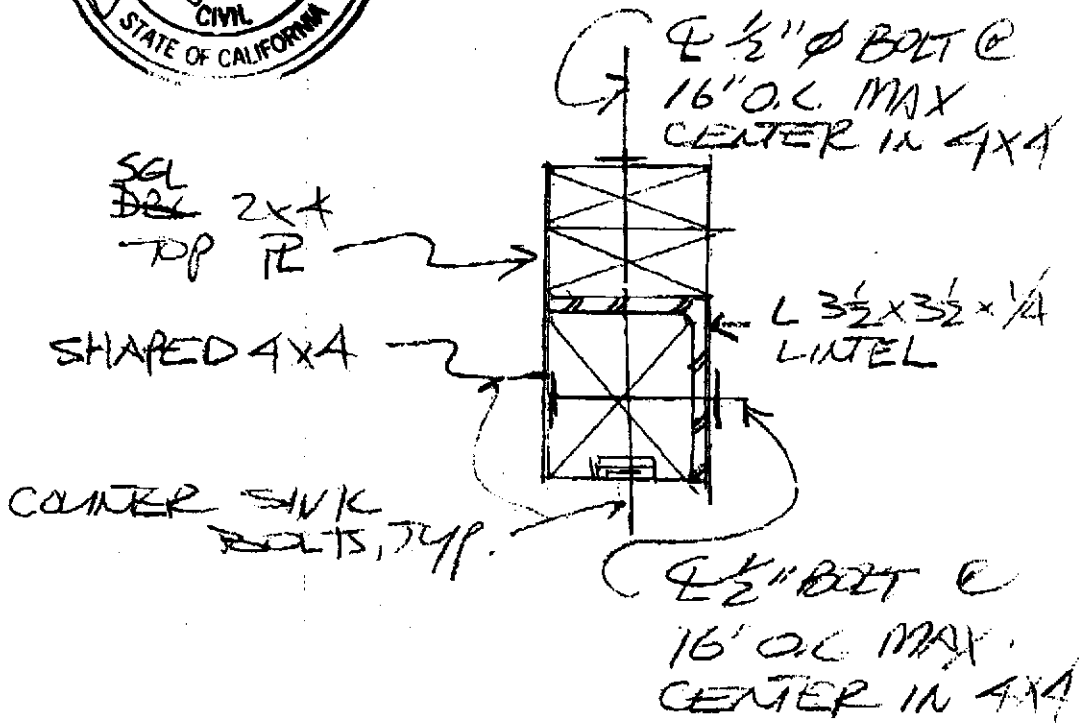 CIVIL
STATE OF CALIFORNIA
℄ 1/2"ø BOLT @
16" O.C. MAX
CENTER IN 4X4
SGL
DBL 2x4
TOP PL
L 3 1/2 x 3 1/2 x 1/4
LINTEL
SHAPED 4X4
COUNTER SINK
BOLTS, TYP.
℄ 1/2" BOLT @
16' O.C MAX.
CENTER IN 4X4